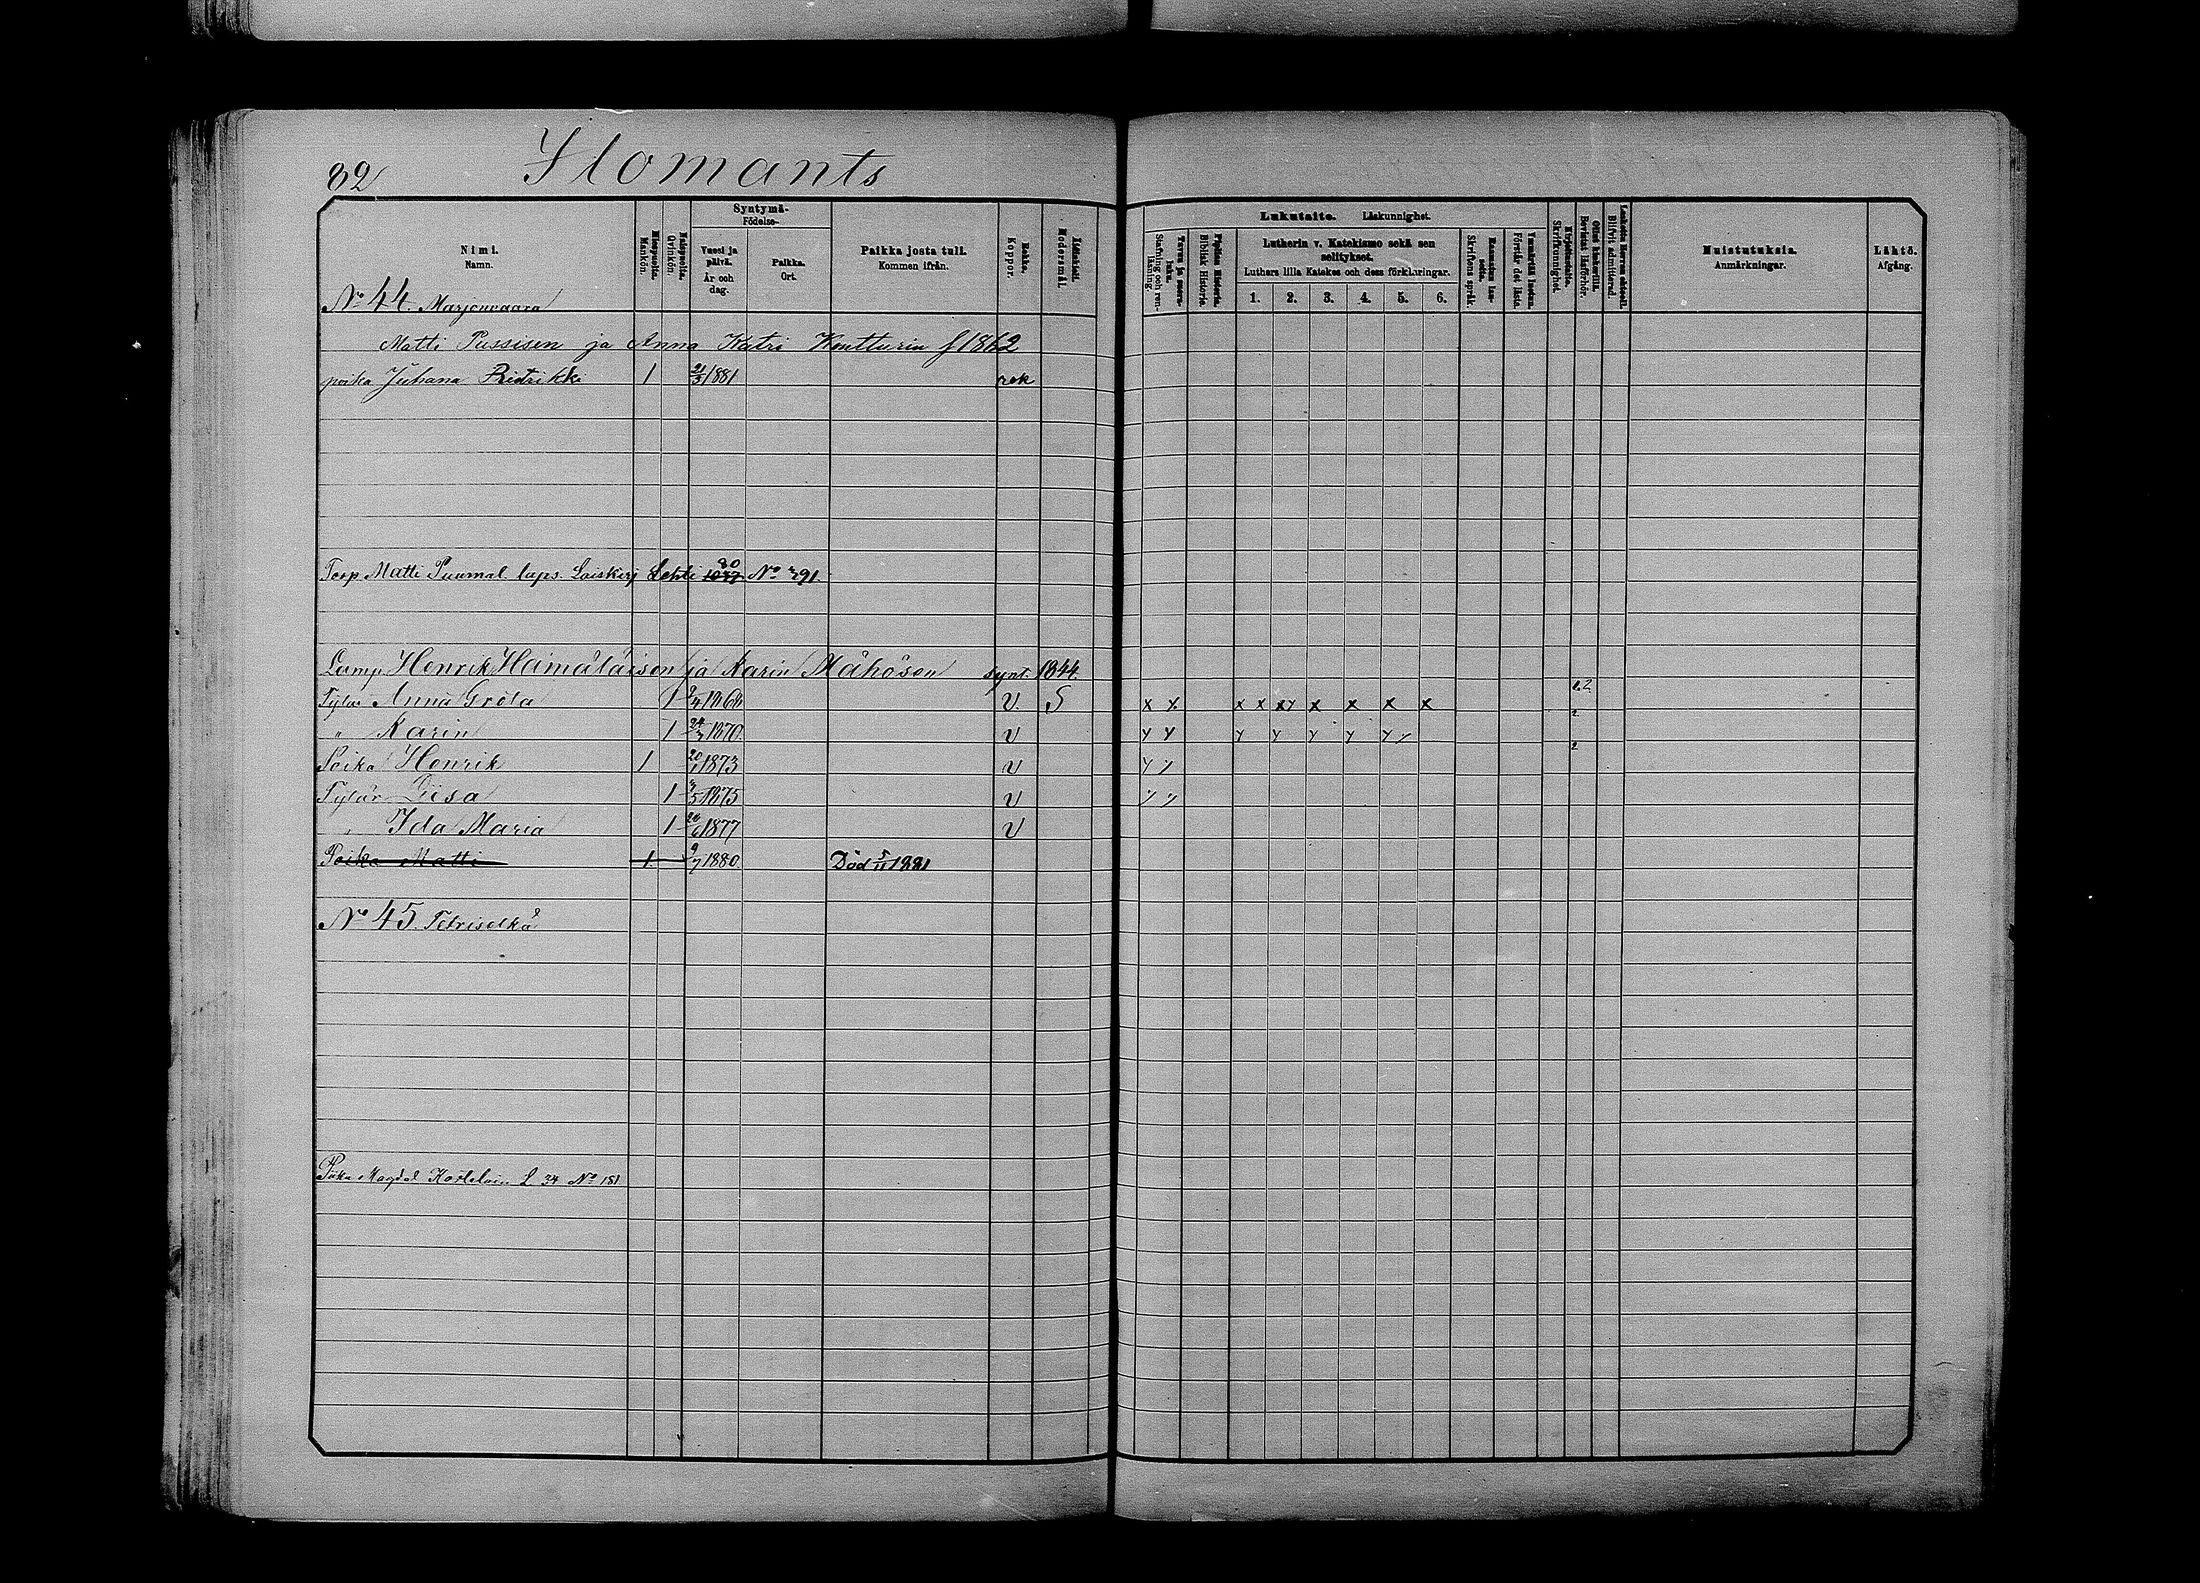 82 Ilomants
Nimi. Namn.
Miespuolia. Mankön.
Naispuolia. Qvinkön.
Syntymä- Födelse-
Vuosi ja päivä. År och dag.
Paikka. Ort.
Paikka josta tuli. Kommen ifrån.
Rokko. Koppor.
Äidinkieli. Modersmål.
Lukutaito. Läskunnighet.
Tavuu ja suora- luku. Stafning och ren- läsning.
Piplian Historia. Biblisk Historie.
Lutherin v. Katekismo sekä sen selitykset.
Luthers lilla Katekes och dess förklaringar.
1. 2. 3. 4. 5. 6.
Raamatun lau- seita. Skriftens språk.
Ymmärtää luetun. Förstår det lästa.
Kirjoitustaito. Skrifkunnighet.
Ollut lukusilla. Bevistat läsförhör.
Laskettu Herran ehtool. Blifvit admitterad.
Muistutuksia. Anmärkningar.
Lähtö. Afgång.
No 44. Marjouvaara
Matti Pussisen ja Anna Katri Kontturin f 1862
poika Juhana Pridrikki 1 21/3 1881 rok
Torp. Matti Puumal. laps. Loiskirj Lehti 80 No 291.
Lamp. Henrik Hämäläisen ja Karin Mähösen synt. 1844.
Tytär Anna Greta 1 2/4 1868 V. S x x x x x y x x x x 1.2
" Karin 1 24/7 1870. V y y y y y y y y 2
Poika Henrik 1 20/1 1873 V y y 2
Tytär Lisa 1 3/5 1875 V y y
" Ida Maria 1 26/6 1877 V
Poika Matti 1. 9/7 1880. Död 5/11 1881
No 45. Petriselkä
Piika Magdal Kostelain L 34 No 151